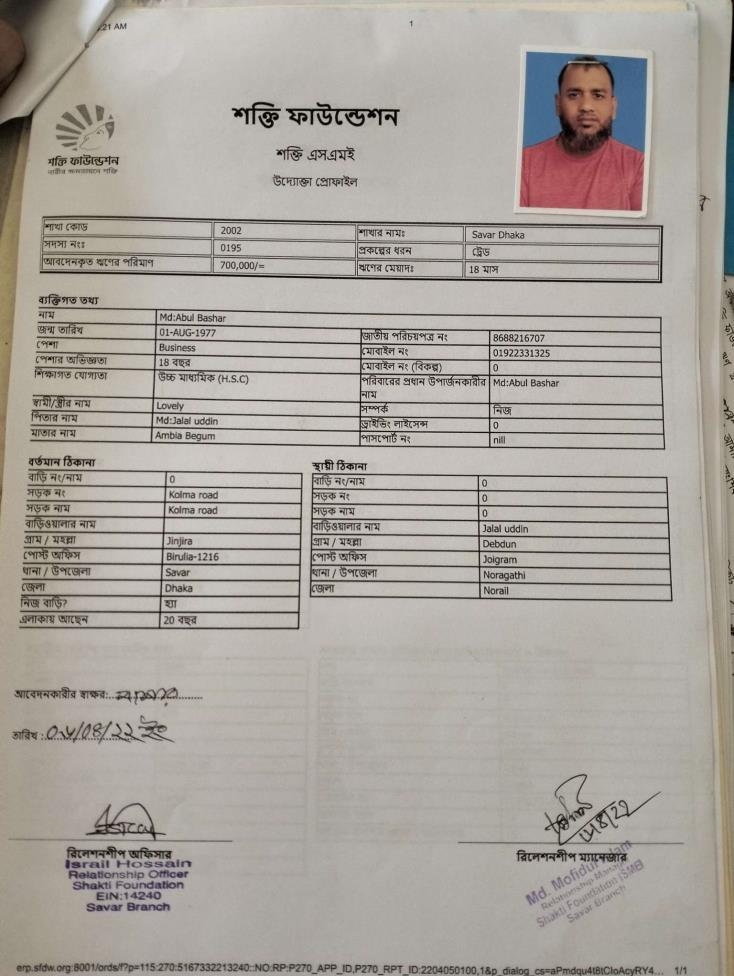 :21 AM
1
শক্তি ফাউন্ডেশন
নারীর ক্ষমতায়নে শক্তি
শক্তি ফাউন্ডেশন
শক্তি এসএমই
উদ্যোক্তা প্রোফাইল
শাখা কোড 2002 শাখার নামঃ Savar Dhaka
সদস্য নংঃ 0195 প্রকল্পের ধরন ট্রেড
আবদেনকৃত ঋণের পরিমাণ 700,000/= ঋণের মেয়াদঃ 18 মাস
ব্যক্তিগত তথ্য
নাম Md:Abul Bashar
জন্ম তারিখ 01-AUG-1977 জাতীয় পরিচয়পত্র নং 8688216707
পেশা Business মোবাইল নং 01922331325
পেশার অভিজ্ঞতা 18 বছর মোবাইল নং (বিকল্প) 0
শিক্ষাগত যোগ্যতা উচ্চ মাধ্যমিক (H.S.C) পরিবারের প্রধান উপার্জনকারীর নাম Md:Abul Bashar
স্বামী/স্ত্রীর নাম Lovely সম্পর্ক নিজ
পিতার নাম Md:Jalal uddin ড্রাইভিং লাইসেন্স 0
মাতার নাম Ambia Begum পাসপোর্ট নং nill
বর্তমান ঠিকানা
বাড়ি নং/নাম 0
সড়ক নং Kolma road
সড়ক নাম Kolma road
বাড়িওয়ালার নাম
গ্রাম / মহল্লা Jinjira
পোস্ট অফিস Birulia-1216
থানা / উপজেলা Savar
জেলা Dhaka
নিজ বাড়ি? হ্যা
এলাকায় আছেন 20 বছর
স্থায়ী ঠিকানা
বাড়ি নং/নাম 0
সড়ক নং 0
সড়ক নাম 0
বাড়িওয়ালার নাম Jalal uddin
গ্রাম / মহল্লা Debdun
পোস্ট অফিস Joigram
থানা / উপজেলা Noragathi
জেলা Norail
আবেদনকারীর স্বাক্ষর:
তারিখ :
রিলেশনশীপ অফিসার
Israil Hossain
Relationship Officer
Shakti Foundation
EIN:14240
Savar Branch
রিলেশনশীপ ম্যানেজার
Md. Mofidul
Relationship Manager
Shakti Foundation (SME)
Savar Branch
erp.sfdw.org:8001/ords/f?p=115:270:5167332213240::NO:RP:P270_APP_ID,P270_RPT_ID:2204050100,1&p_dialog_cs=aPmdqu4t8tCloAcyRY4... 1/1